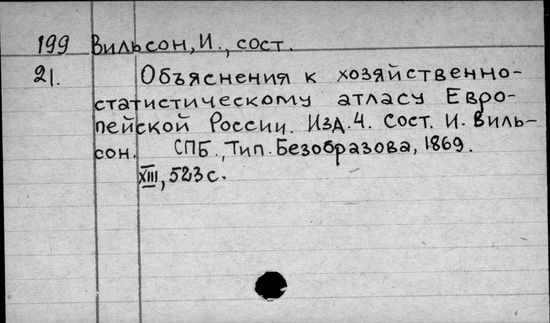 199 Вильсон, И., сост.
21. Объяснения к хозяйственно-
статистическому атласу Евро-
пейской России. Изд. 4. Сост. И. Виль-
сон. СПБ., Тип. Безобразова, 1869.
XIII, 523 с.